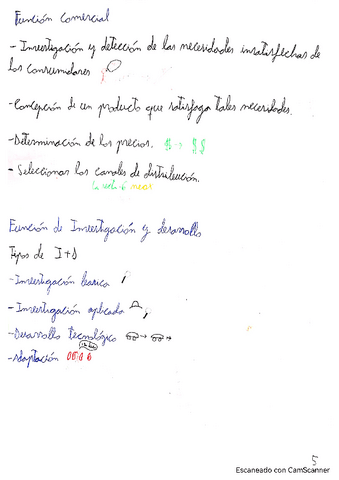 Función Comercial
- Investigación y detección de las necesidades insatisfechas de
los consumidores
- Concepción de un producto que satisfaga tales necesidades.
- Determinación de los precios.
- Seleccionar los canales de distribución.
Función de Investigación y desarrollo
Tipos de I+D
- Investigación basica
- Investigación aplicada
- Desarrollo tecnológico
- Adaptación
5
Escaneado con CamScanner